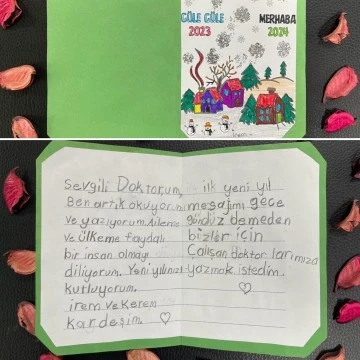 GÜLE GÜLE
2023
MERHABA
2024
irem
Sevgili Doktorum,
Ben artık okuyorum
ve yazıyorum. Aileme
ve ülkeme faydalı
bir insan olmayı
diliyorum. Yeni yılınızı
kutluyorum.
irem ve Kerem
Kardeşim. ♡
ilk yeni yıl
mesajımı gece
gündüz demeden
bizler için
Çalışan doktorlarımıza
yazmak istedim.
♡